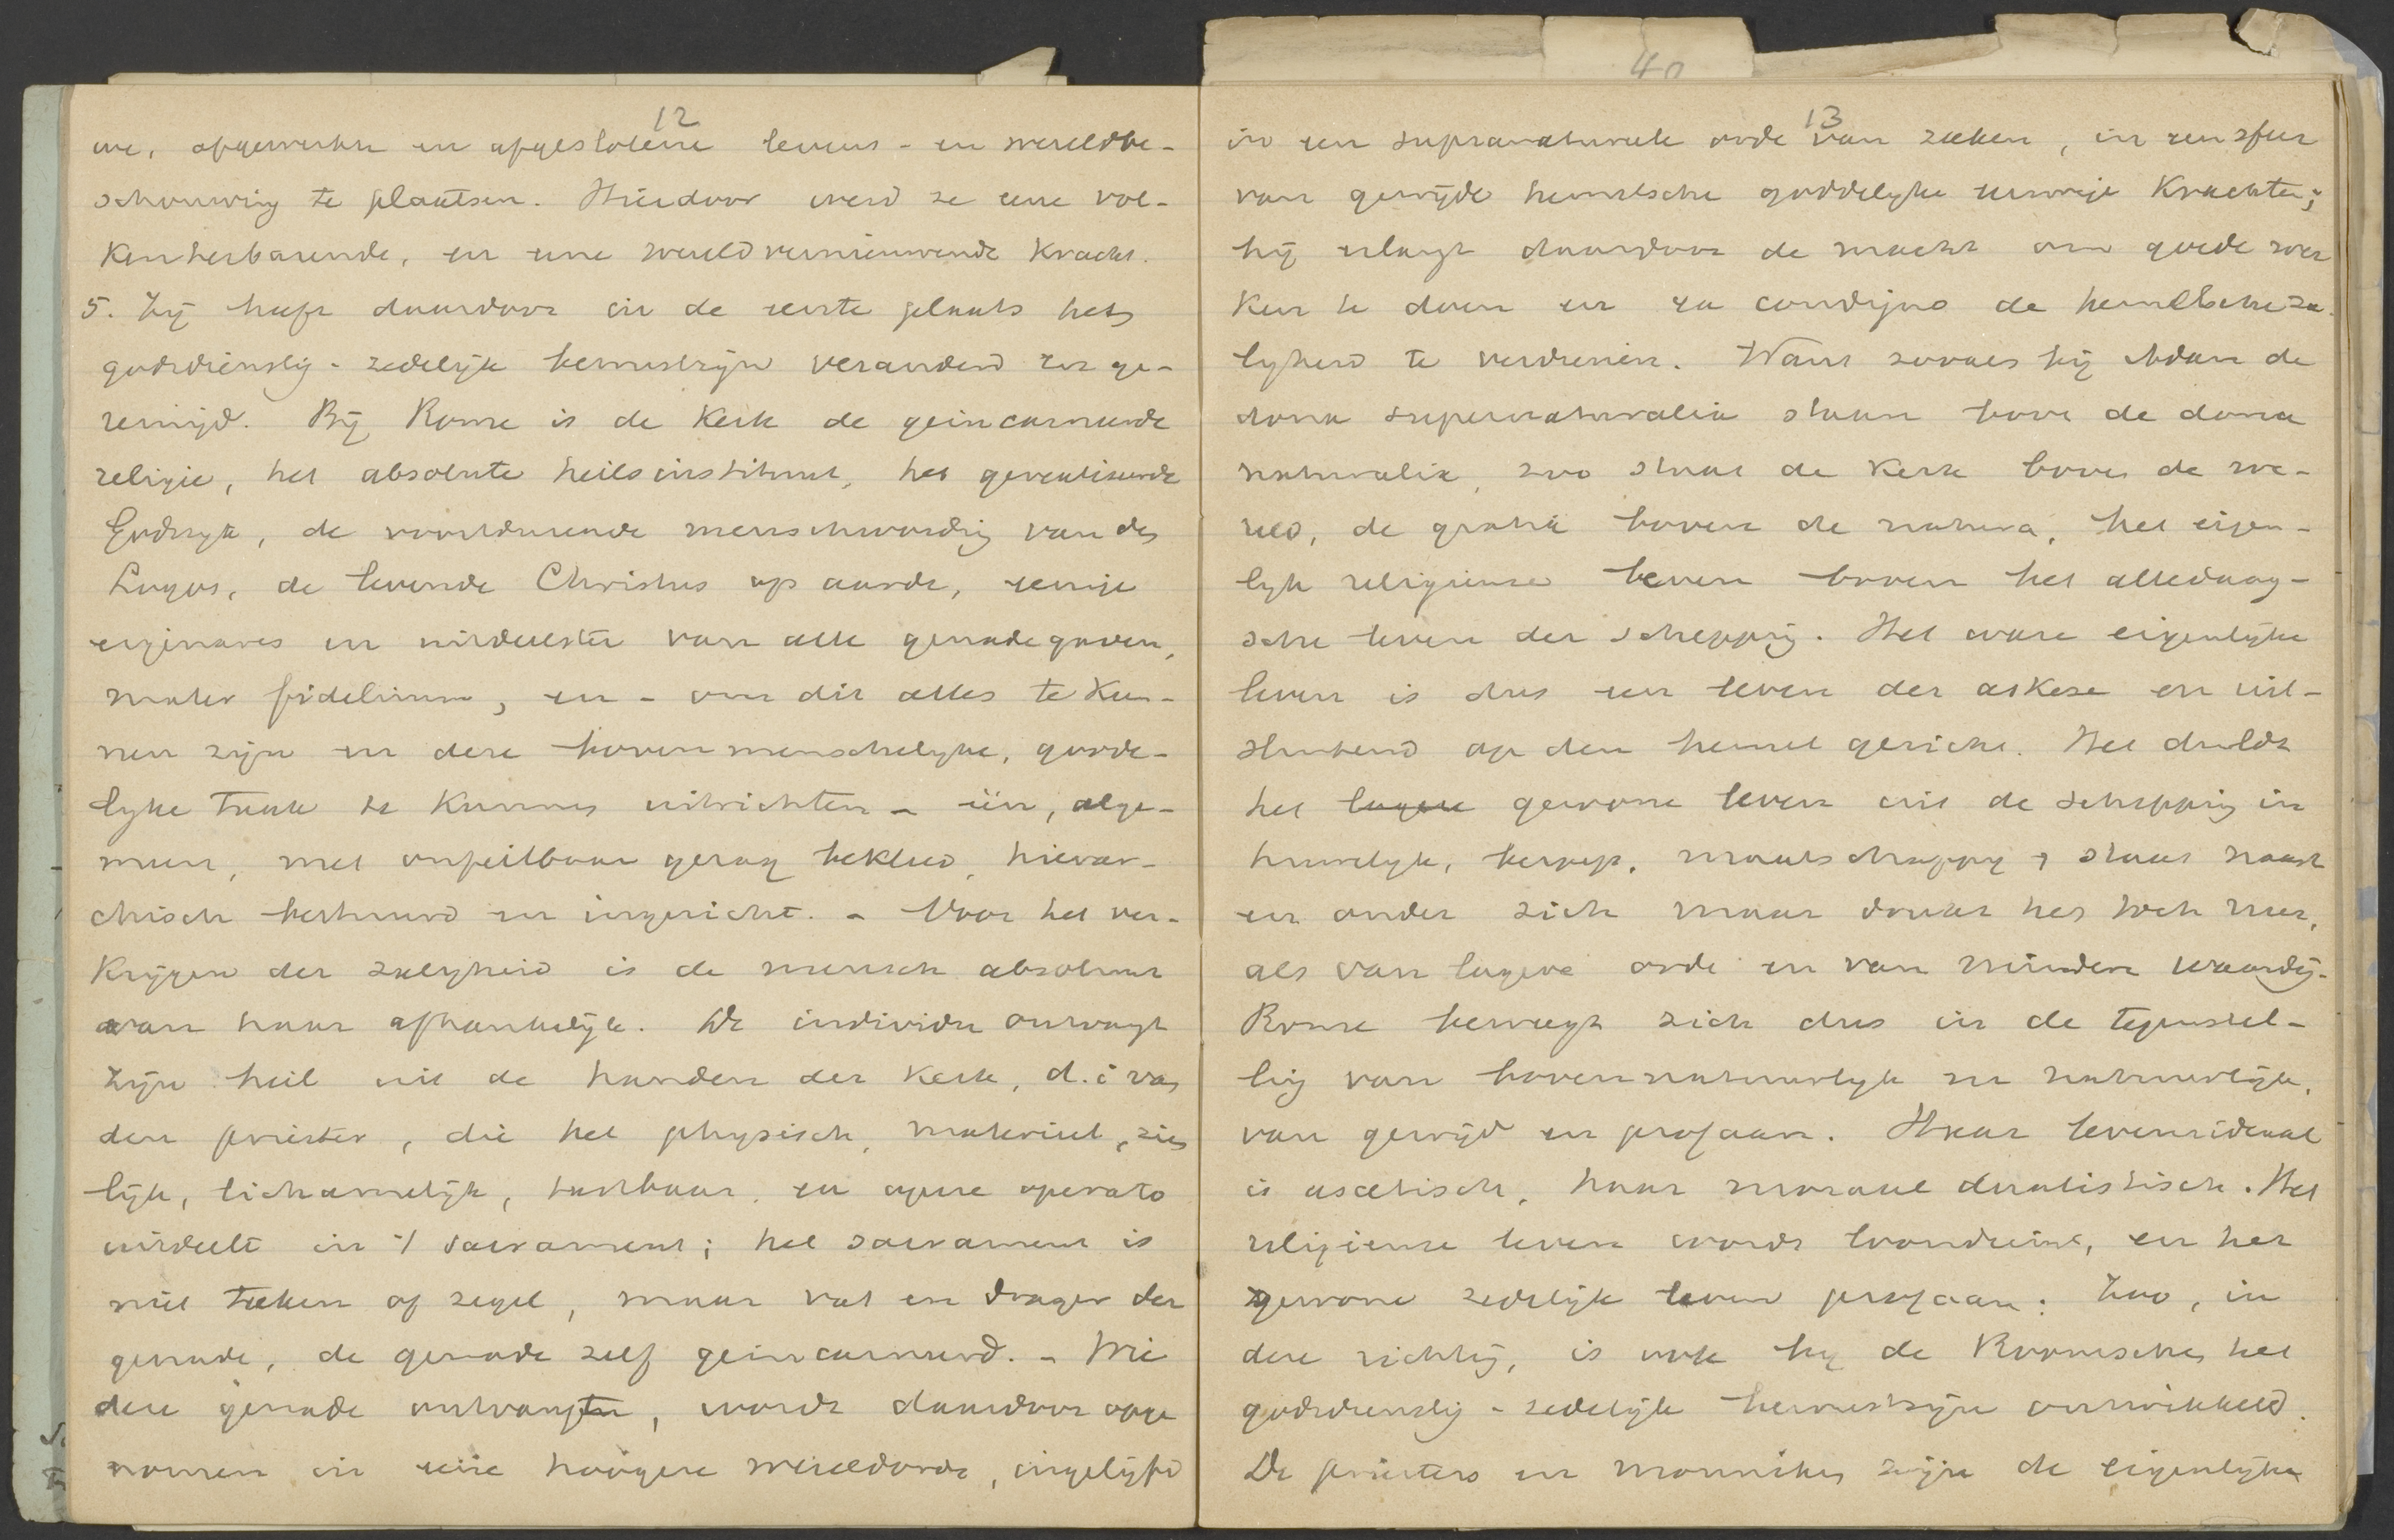 40
12
we, opgewerkte en afgeslotene levens- en wereldbe-
schouwing te plaatsen. Hierdoor werd ze eene vol-
kenherbarende, en eene wereldvernieuwende kracht.
5. Zij heeft daardoor in de eerste plaats het
godsdienstig-zedelijk bewustzijn veranderd en ge-
reinigd. Bij Rome is de Kerk de geincarneerde
religie, het absolute heilsinstituut, het gerealiseerde
Godsryk, de voortdurende menschwording van den
Logos, de levende Christus op aarde, eenige
eigenares en uitdeelster van alle genadegaven,
mater fidelium, en - om dit alles te kun-
nen zijn en deze bovenmenschelyke, godde-
lyke taak te kunnen uitrichten - één, alge-
meen, met onfeilbaar gezag bekleed, hierar-
chisch bestuurd en ingericht. - Voor het ver-
krijgen der zaligheid is de mensch absoluut
van haar afhankelijk. De individu ontvangt
zijn heil uit de handen der Kerk, d.i. van
den priester, die het physisch, materieel, zin
lijk, lichamelijk, tastbaar, ex opere operato
uitdeelt in 't sacrament; het sacrament is
niet teeken of zegel, maar vat en drager der
genade, de genade zelf geincarneerd. - Wie
deze genade ontvangt, wordt daardoor opge
nomen in eene hoogere wereldorde, ingelijfd
13
in een supranatureele orde van zaken, in een sfeer
van gewijde hemelsche goddelyke eeuwige krachten;
hij erlangt daardoor de macht om goede wer
ken te doen en ex condigno de hemelsche za
lykheid te verdienen. Want zooals bij Adam de
dona supernaturalia staan boven de dona
naturalia, zoo staat de Kerk boven de we-
reld, de gratia boven de natura, het eigen-
lyk religieuse leven boven het alledaag-
sche leven der schepping. Het ware eigenlijke
leven is dus een leven der askese en uit-
sluitend op den hemel gericht. Het duldt
het lagere gewone leven uit de schepping in
huwelyk, beroep, maatschappy & staat naast
en onder zich maar drukt het toch neer,
als van lagere orde en van mindere waardij.
Rome beweegt zich dus in de tegenstel-
ling van bovennatuurlyk en natuurlijk,
van gewijd en profaan. Haar levensideaal
is ascetisch, haar moraal dualistisch. Het
religieuse leven wordt boven het
gewone zedelijk leven profaan: Zoo, in
deze richting, is ook by de Roomschen het
godsdienstig-zedelijk bewustzijn ontwikkeld.
De priesters en monniken zijn de eigenlijke